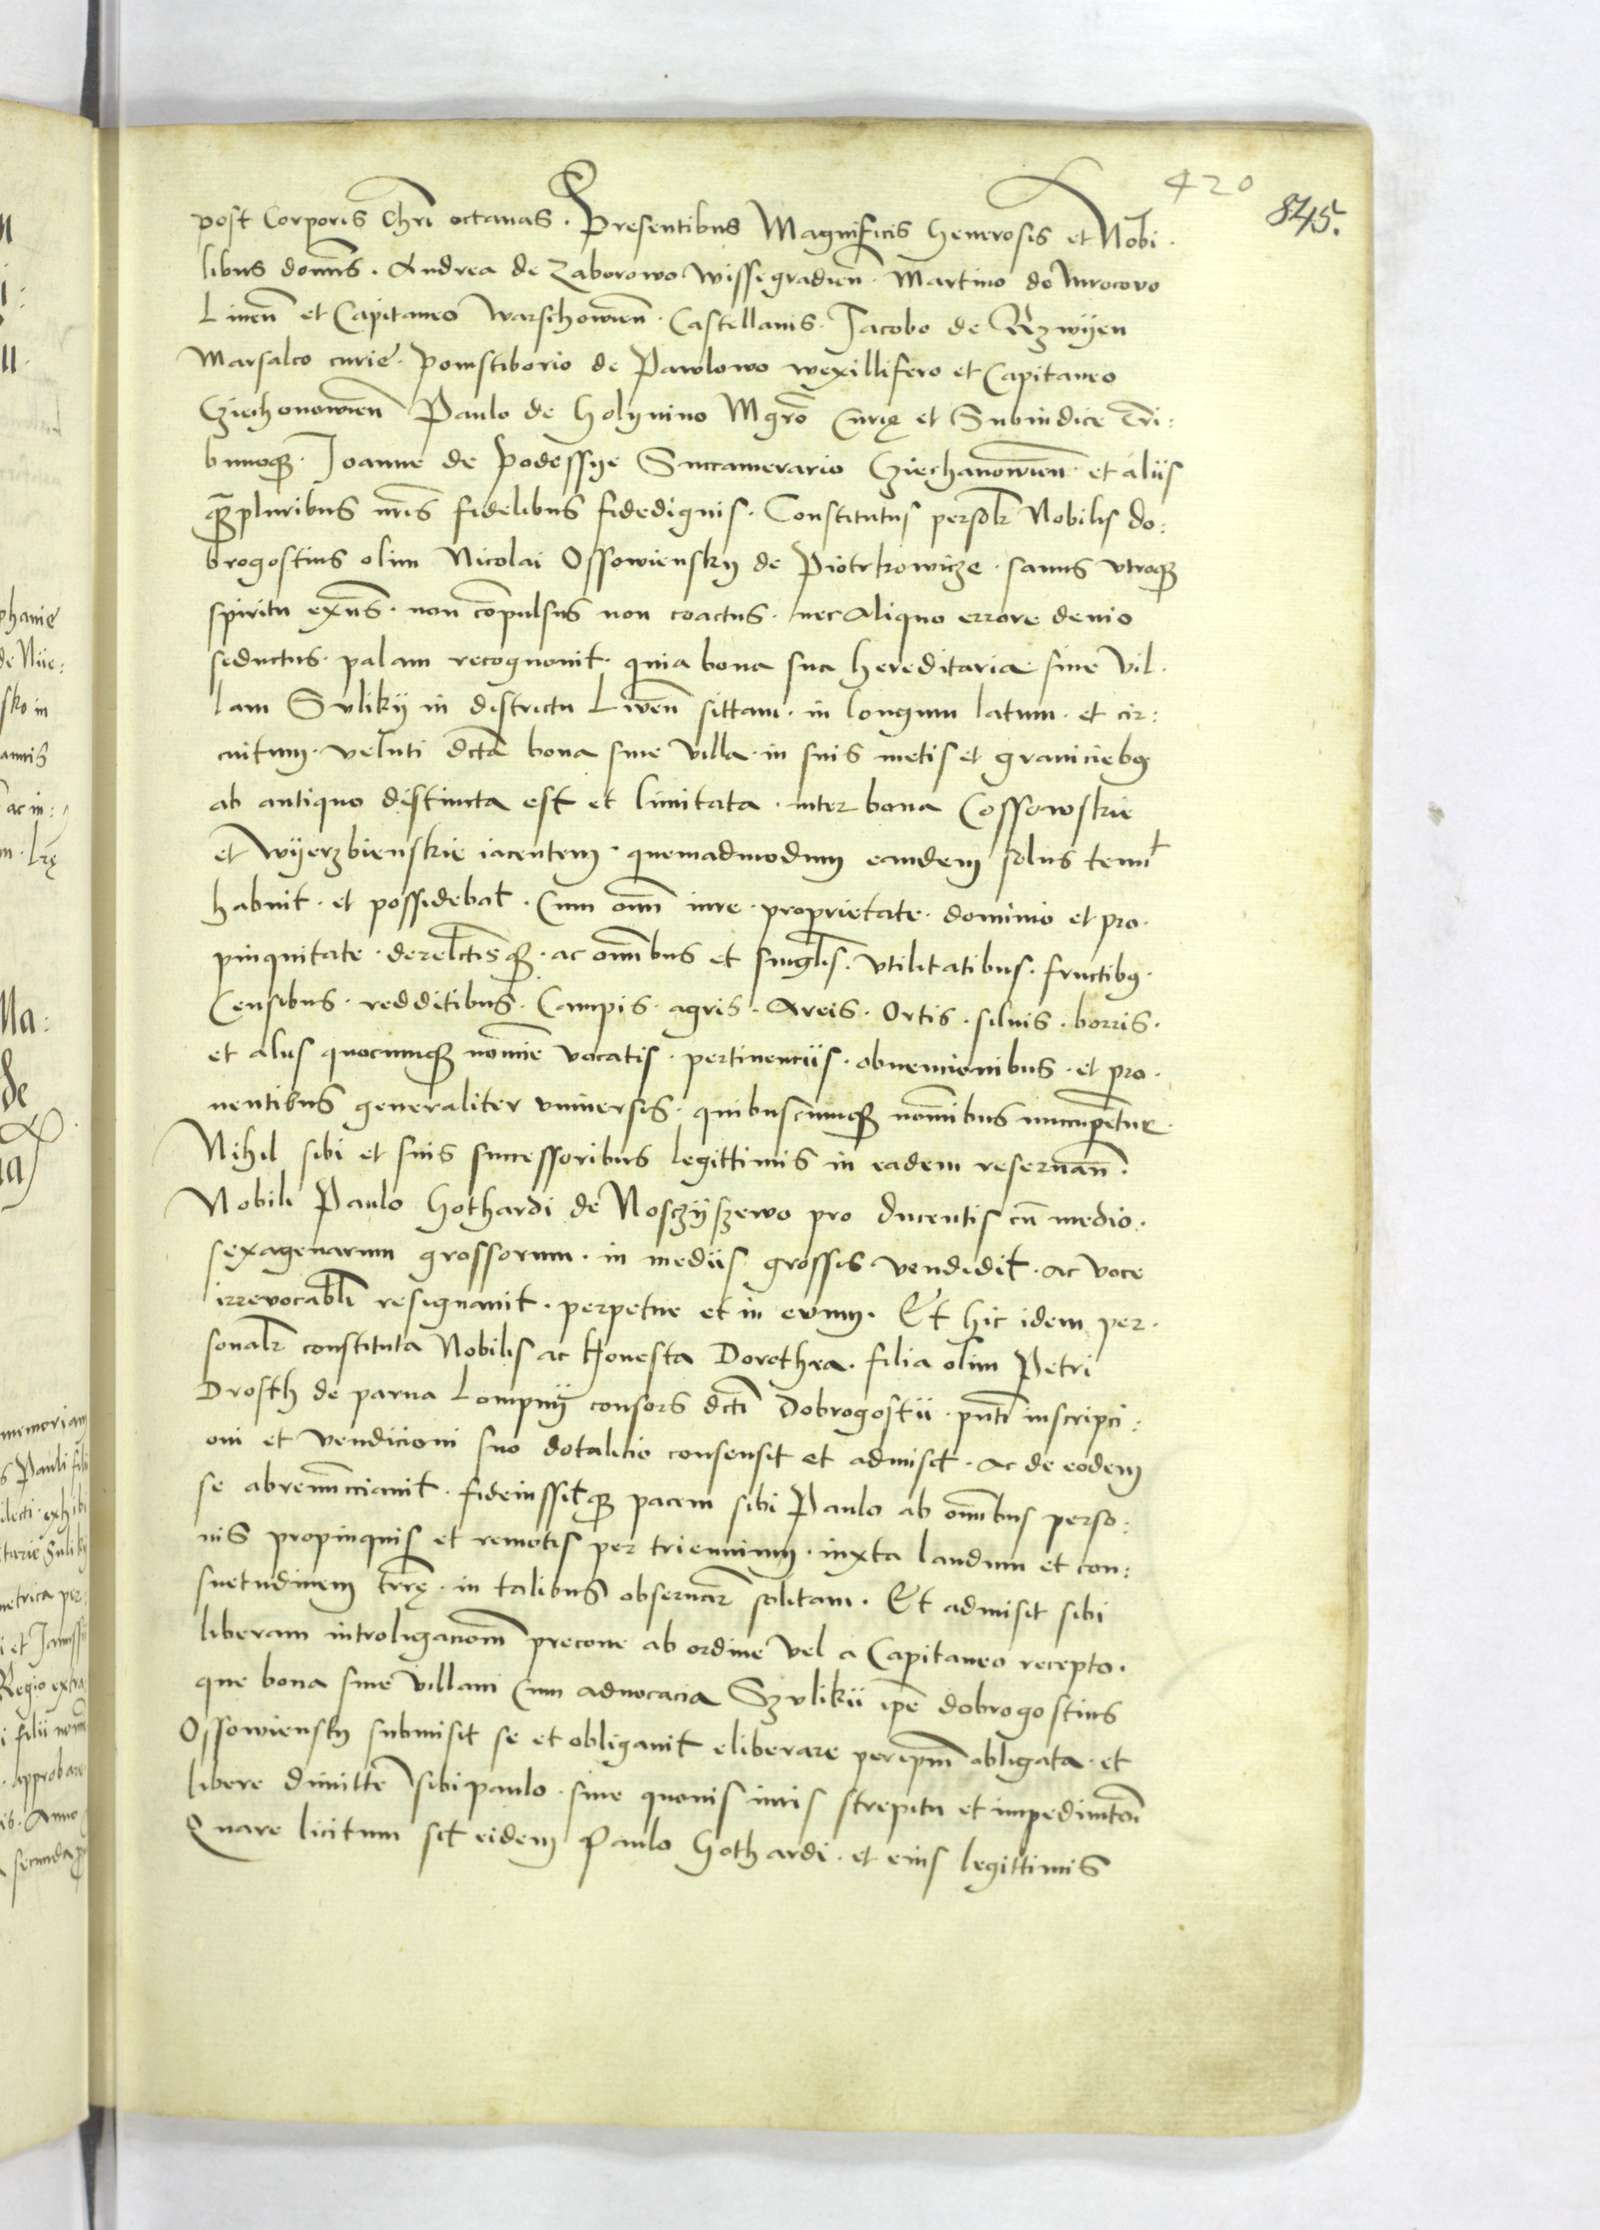 420
845.
post Corporis Chri octauas. Presentibus Magnificis Generosis et Nobi.
libus domis. Andrea de Zaborowo. Wissegradien. Martino de Mrocovo
Liuen et Capitaneo Warschowien. Castellanis. Jacobo de Rzwyen
Marsalco curie. Pomstiborio de Pawlowo wexillifero et Capitaneo
Cziechonowien Paulo de Golynino Mgro Curie et Subiudice Tri:
bunoque. Joanne de Podessye Succamerario Cziechanowien. et aliis
quampluribus nris fidelibus fidedignis. Constitutus personalr Nobilis do:
brogostius olim Nicolai Ossowiensky de Piotrkowicze. sanus vtroque
spiritu exns. non compulsus non coactus. nec aliquo errore deuio
seductus. palam recognouit. quia bona sua hereditaria siue Vil.
lam Svliky in districtu Liwen sittam. in longum latum. et cir:
cuitum. veluti dcta bona siue villa. in suis metis et graniciebus
ab antiquo distincta est et limitata. inter bona Cossowskie
et Wyerzbienskie iacentem. quemadmodum eandem solus tenuit
habuit. et possidebat. Cum omni iure. proprietate. dominio et pro.
pinquitate. derelctisque. ac omnibus et singlis. vtilitatibus. fructibus.
Censibus. redditibus. Campis. agris. Areis. Ortis. siluis. borris.
et aliis quocumque nomine vocatis. pertinenciis. obuencionibus. et pro.
uentibus generaliter vniuersis. quibuscumque nominibus nuncupentur.
Nihil sibi et suis successoribus legittimis in eadem reseruan.
Nobili Paulo Gothardi de Nosczyszewo pro ducentis cu medio.
sexagenarum grossorum. in mediis grossis vendidit. ac voce
irreuocabli resignauit. perpetue et in euum. Et hic idem per.
sonalr constituta Nobilis ac Honesta Dorothea. filia olim Petri
Drosth de parua Lompny consors dcti Dobrogostii. pnti inscripci:
oni et vendicioni suo dotalicio consensit et admisit. Ac de eodem
se abrenuncciauit. fideiussitque pacem sibi Paulo ab omnibus perso:
nis propinquis et remotis per triennium. iuxta laudum et con:
suetudinem terre. in talibus obseruar solitam. Et admisit sibi
liberam introligacionem precone ab ordine vel a Capitaneo recepto.
que bona siue villam Cum aduocacia Szvlikii ipe dobrogostius
Ossowiensky submisit se et obligauit eliberare per ipm obligata. et
libere dimitte sibi paulo. sine quouis iuris strepitu et impedimtoi
Quare licitum sit eidem Paulo Gothardi. et eius legittimis